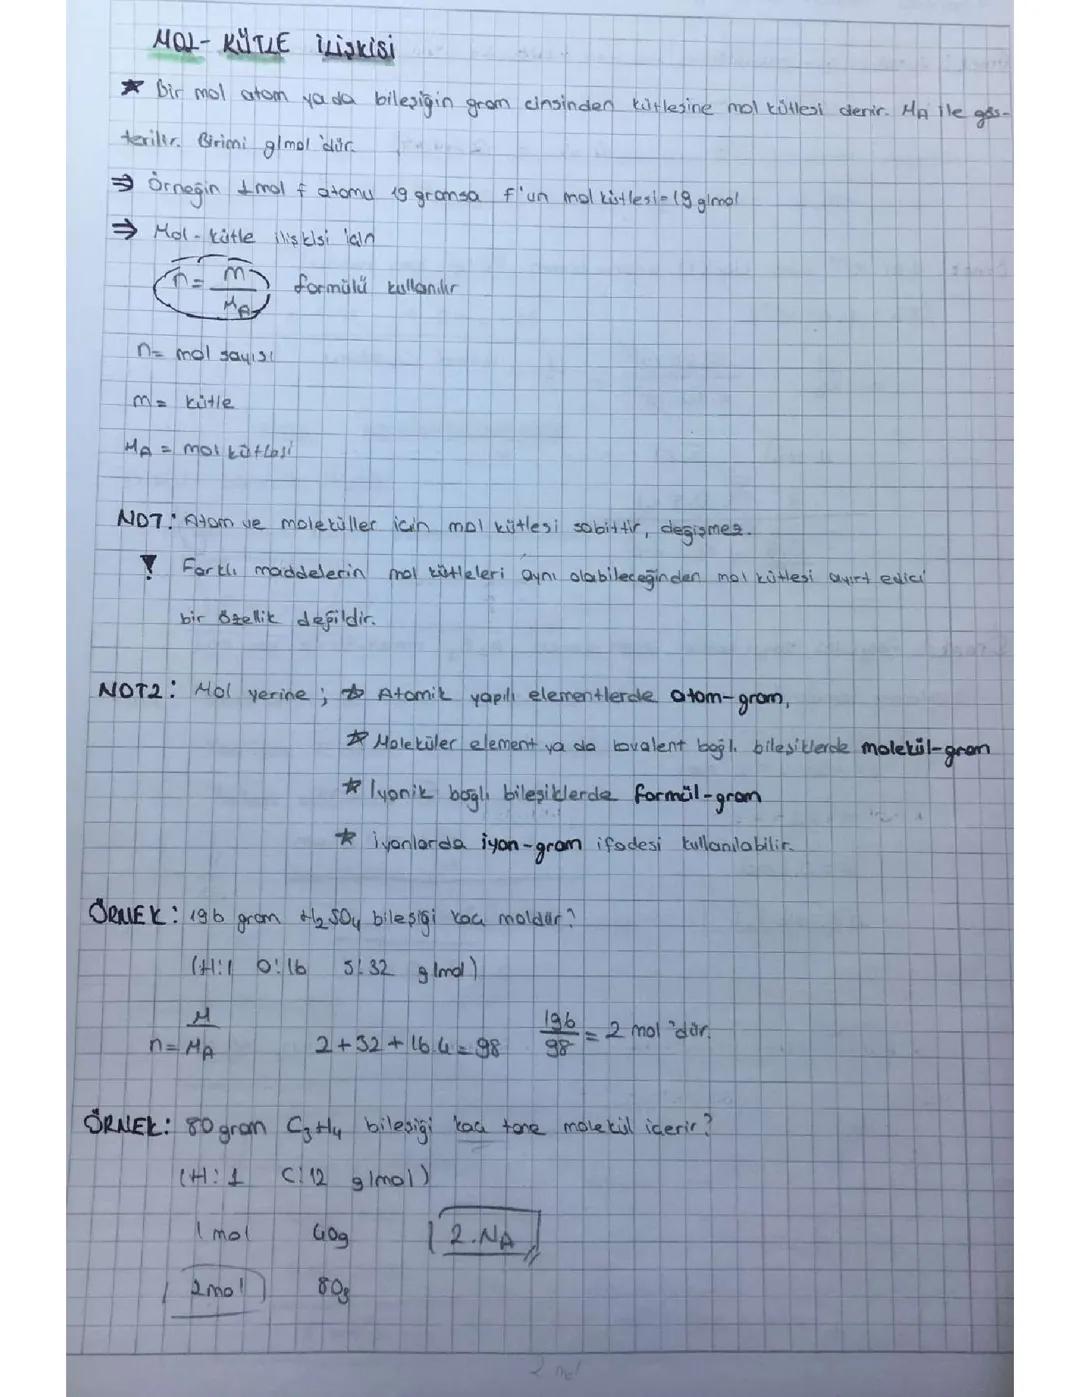 MOL- KÜTLE İLİŞKİSİ
★ Bir mol atom ya da bileşiğin gram cinsinden kütlesine mol kütlesi denir. MA ile gös-
terilir. Birimi g/mol'dür.
⇒ Örneğin 1 mol f atomu 19 gramsa f'un mol kütlesi = 19 g/mol
⇒ Mol - kütle ilişkisi için
n = m / MA formülü kullanılır
n = mol sayısı
m = kütle
MA = mol kütlesi
NOT: Atom ve moleküller için mol kütlesi sabittir, değişmez.
! Farklı maddelerin mol kütleleri aynı olabileceğinden mol kütlesi ayırt edici
bir özellik değildir.
NOT2: Mol yerine ; ★ Atomik yapılı elementlerde atom-gram,
★ Moleküler element ya da kovalent bağlı bileşiklerde molekül-gram
★ İyonik bağlı bileşiklerde formül-gram
★ iyonlarda iyon-gram ifadesi kullanılabilir.
ÖRNEK: 196 gram H2SO4 bileşiği kaç moldür?
(H:1 O:16 S:32 g/mol)
n = M / MA 2+32+16.4=98 196/98 = 2 mol'dür.
ÖRNEK: 80 gram C3H4 bileşiği kaç tane molekül içerir?
(H:1 C:12 g/mol)
1 mol 40g 2.NA
2mol 80g
2 mol